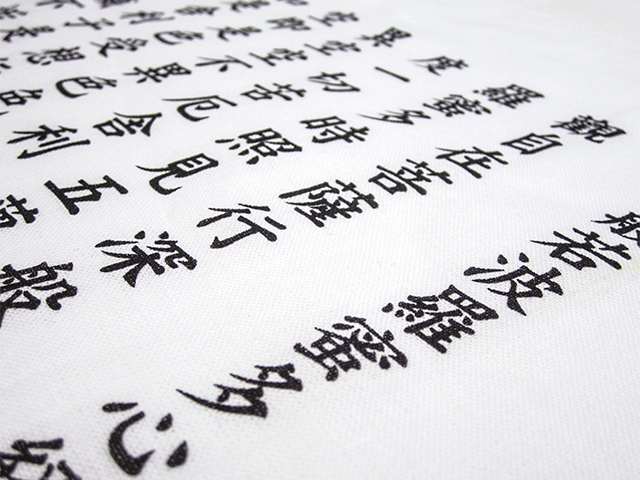 般若波羅蜜多心
觀自在菩薩行深般
羅蜜多時照見五
度一切苦厄舍利
異空空不異色色
空即是色受想
舍利子是